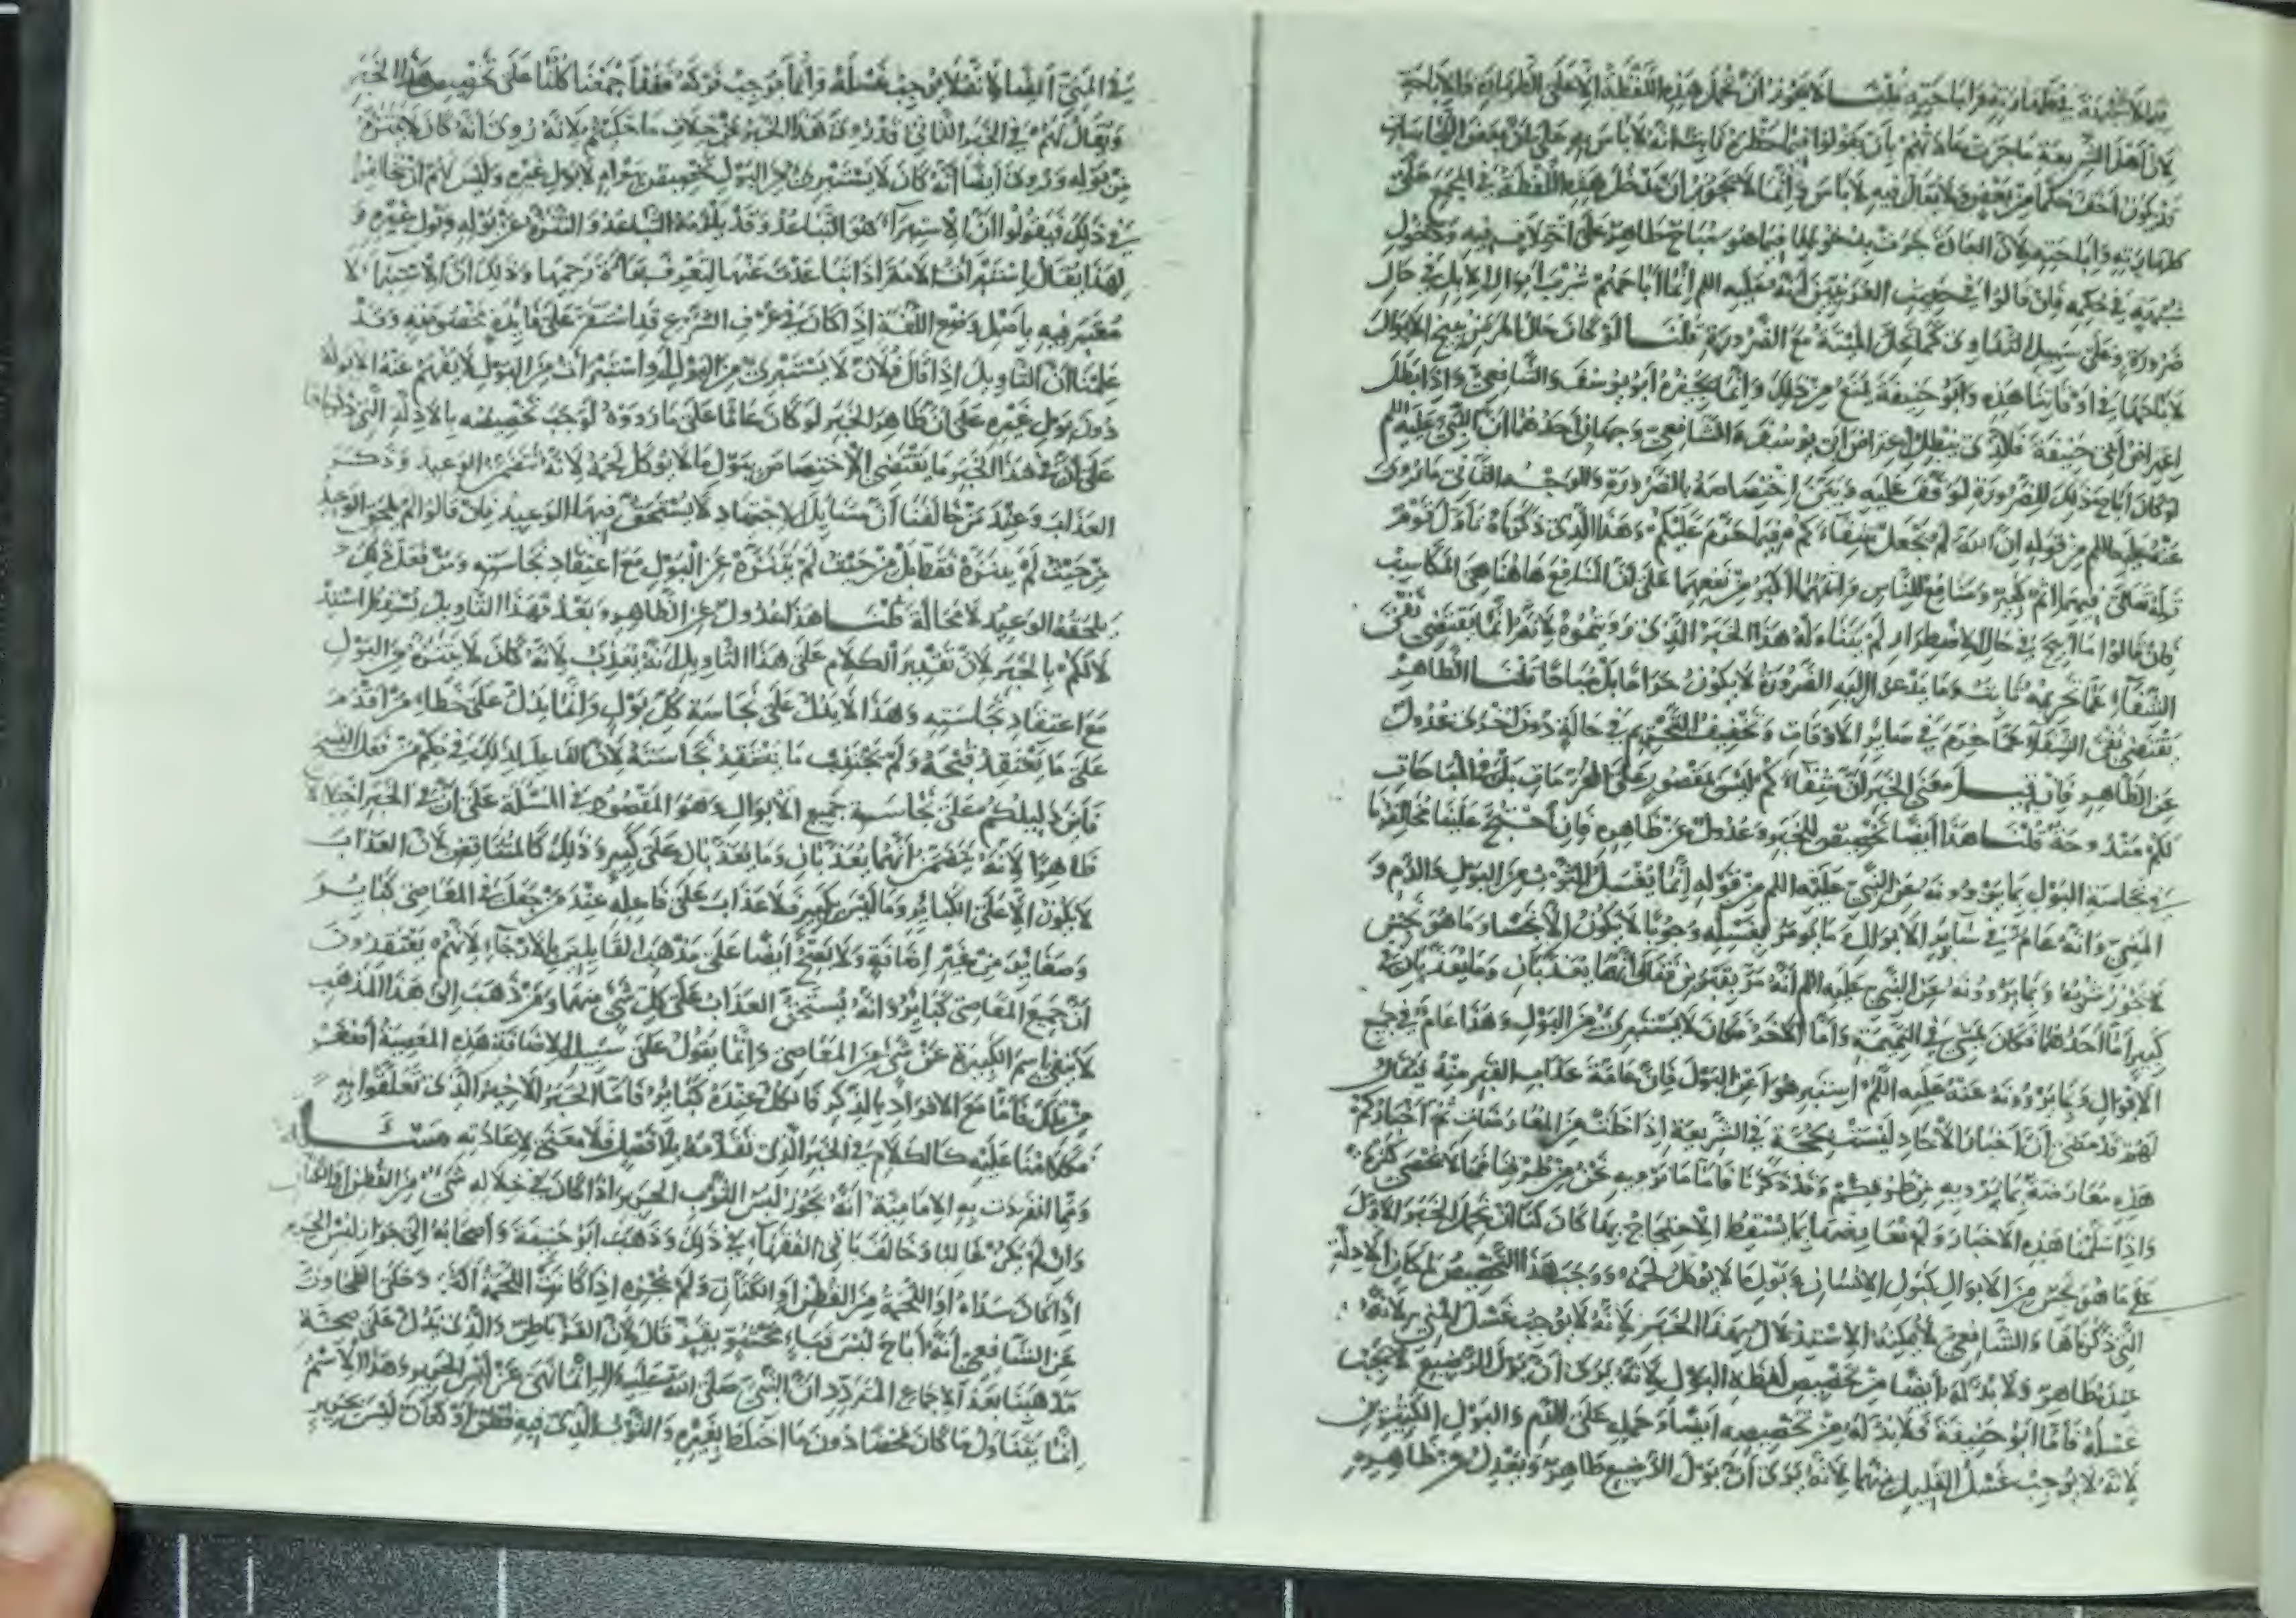 لان هذا الشريعة ما جرت عادتهم بان يقولوا فيما حظره ثابت انه لا باس به على ان بعض النجاسات
قد يكون اخف حكما من بعض ولا يقال فيه لا باس به وانما لا يجوز ان تدخل هذه اللفظة في المجمع على
طهارته واباحته لان العادة جرت بدخولها فيما هو مباح طاهر على اختلاف فيه ودخول
شبهة في حكمه فان قالوا في حديث العرنيين انه عليه السلم انما اباحهم شرب ابوال الابل في حال
ضرورة وعلى سبيل التداوى كما تحل الميتة مع الضرورة قلنا لو كان حال المرض يبيح الابوال
لاباحها في اوقاتنا هذه وابو حنيفة يمنع من ذلك وانما يجيزه ابو يوسف والشافعي واذا بطل
اعتراض ابي حنيفة فالذى يبطل اعتراض ابي يوسف والشافعي وجهان احدهما ان النبي عليه السلم
لو كان اباح ذلك للضرورة لوقف عليه وبين اختصاصه بالضرورة والوجه الثاني ما روى
عنه عليه السلم من قوله ان الله لم يجعل شفاءكم فيما حرم عليكم وهذا الذى ذكرناه تاول قوم
قوله تعالى فيهما اثم كبير ومنافع للناس واثمهما اكبر من نفعهما على ان المنافع هاهنا هي المكاسب
فان قالوا ما ابيح في حال الاضطرار لم يتناوله هذا الخبر الذى رويتموه لانه انما يقتضى نفى
الشفاء عما تحريمه ثابت وما يدعوا اليه الضرورة لا يكون حراما بل مباحا قلنا الظاهر
يقتضى نفى الشفاء عما حرم في ساير الاوقات وتخفيف التحريم في حالة دون اخرى عدول
عن الظاهر فان قيل معنى الخبر ان شفاءكم ليس بمقصور على المحرمات بل في المباحات
لكم مندوحة قلنا هذا ايضا تخصيص للخبر وعدول عن ظاهره فان احتج علينا مخالفونا
في نجاسة البول بما يروونه عن النبي عليه السلم من قوله انما يغسل الثوب من البول والدم و
المني وانه عام في ساير الابوال وما يؤمر بغسله وجوبا لا يكون الا نجسا وما هو نجس
لا يجوز شربه وبما يروونه عن النبي عليه السلم انه مر بقبرين فقال انهما يعذبان وما يعذبان في
كبير اما احدهما فكان يمشى في النميمة واما الاخر فكان لا يستبرئ من البول وهذا عام في جميع
الابوال وبما يروونه عنه عليه السلم استنزهوا عن البول فان عامة عذاب القبر منه يقال
لهم قد مضى ان اخبار الاحاد ليست بحجة في الشريعة اذا خلت من المعارضات ثم اخباركم
هذه معارضة بما يرويه من طرقكم وقد ذكرنا فاما ما نرويه نحن من طرقنا فمما لا تحصى كثرة
واذا سلمنا هذه الاخبار ولم نعارضها بما يسقط الاحتجاج بها كان لنا ان نحمل الخبر الاول
على ما هو نجس من الابوال كبول الانسان وبول ما لا يوكل لحمه ووجب هذا التخصيص لمكان الادلة
التي ذكرناها والشافعي لا يمكنه الاستدلال بهذا الخبر لانه لا يوجب غسل المني لانه
عنده طاهر ولا بد له ايضا من تخصيص لفظة البول لانه يرى ان بول الرضيع لا يجب
غسله فاما ابو حنيفة فلا بد له من تخصيصه ايضا وحمله على الدم والبول الكثيرين
لانه لا يوجب غسل القليل منهما لانه يرى ان بول الرضيع طاهر ويعدل عن ظاهره
في المني ايضا لانه لا يوجب غسله وانما يوجب فركه فقد اجمعنا كلنا على تخصيص هذا الخبر
ويقال لهم في الخبر الثاني قد روى هذا الخبر على خلاف ما حكيتم لانه روى انه كان لا يتنزه
من بوله وروى ايضا انه كان لا يستبرئ من البول تخصيص بوله لا بول غيره وليس لهم ان يخالفوا
في ذلك فيقولوا ان الاستبراء هو التباعد وقد يلزمه التباعد والتنزه عن بوله وبول غيره و
لهذا يقال استبرات الامة اذا تباعدت عنها لتعرف براءة رحمها وذلك ان الاستبراء لا
معتبر فيه باصل وضع اللغة اذا كان في عرف الشرع قد استقر على فايدة مخصوصة وقد
علمنا ان القايل اذا قال فلان لا يستبرئ من البول واستبرات من البول لا يفهم عنه الا بوله
دون بول غيره على ان ظاهر الخبر لو كان عاما على ما رووه لوجب تخصيصه بالادلة التي ذكرناها
على ان في هذا الخبر ما يقتضى الاختصاص ببول ما لا يوكل لحمه لانه تضمن الوعيد وذكر
العذاب وعند من خالفنا ان مسايل الاجتهاد لا يستحق فيها الوعيد فان قالوا لم يلحق الوعيد
من حيث لم يتنزه فقط بل من حيث لم يتنزه عن البول مع اعتقاد نجاسته ومن فعل ذلك
يلحقه الوعيد لا محالة قلنا هذا عدول عن الظاهر وبعد فهذا التاويل يسقط استد
لالكم بالخبر لان تقدير الكلام على هذا التاويل انه يعذب لانه كان لا يتنزه من البول
مع اعتقاد نجاسته وهذا لا يدل على نجاسة كل بول وانما يدل على خطاء من اقدم
على ما يعتقد قبحه ولم يجتنب ما يعتقد نجاسته لان الفاعل لذلك في حكم من فعل القبيح
فاين دليلكم على نجاسة جميع الابوال وهو المقصود في المسئلة على ان في الخبر اختلالا
ظاهرا لانه يتضمن انهما يعذبان وما يعذبان على كبير وذلك كالمتناقض لان العذاب
لا يكون الا على الكبائر وما ليس بكبير فلا عذاب على فاعله عند من جعل في المعاصى كبائر
وصغائر من غير اضافة ولا يصح ايضا على مذهب القايلين بالارجاء لانهم يعتقدون
ان جميع المعاصى كبائر وانه يستحق العذاب على كل شئ منها ومن ذهب الى هذا المذهب
لا ينفى اسم الكبيرة عن شئ من المعاصى وانما يقول على سبيل الاضافة هذه المعصية اصغر
من تلك فاما مع الافراد بالذكر فالكل عنده كبائر فاما الخبر الاخير الذى تعلقوا به
فكلامنا عليه كالكلام في الخبر الذى تقدمه بلا فصل فلا معنى لاعادته مسئلة
ومما انفردت به الامامية انه يجوز لبس الثوب الحرير اذا كان في خلاله شئ من القطن او الكتان
وان لم يكن غالبا وخالف باقي الفقهاء في ذلك وذهب ابو حنيفة واصحابه الى جواز لبس الحرير
اذا كان سداه او لحمته من القطن او الكتان ولم يجزه اذا كانت اللحمة وحكى الطحاوى
عن الشافعي انه اباح لبس قباء محشو بقز قال لان القز باطن والذى يدل على صحة
مذهبنا بعد الاجماع المتردد ان النبي صلى الله عليه انما نهى عن لبس الحرير وهذا الاسم
انما يتناول ما كان محضا دون ما اختلط بغيره والثوب الذى فيه قطن او كتان ليس بحرير